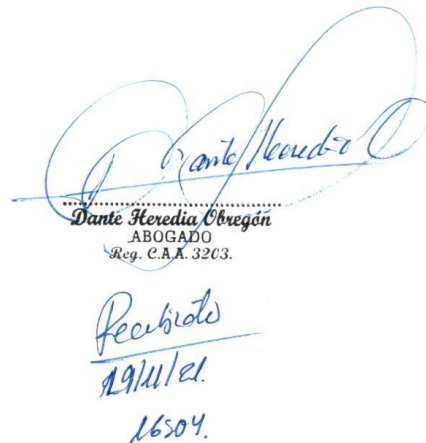 Dante Heredia O
Dante Heredia Obregón
ABOGADO
Reg. C.A.A. 3203.
Recibido
19/11/21.